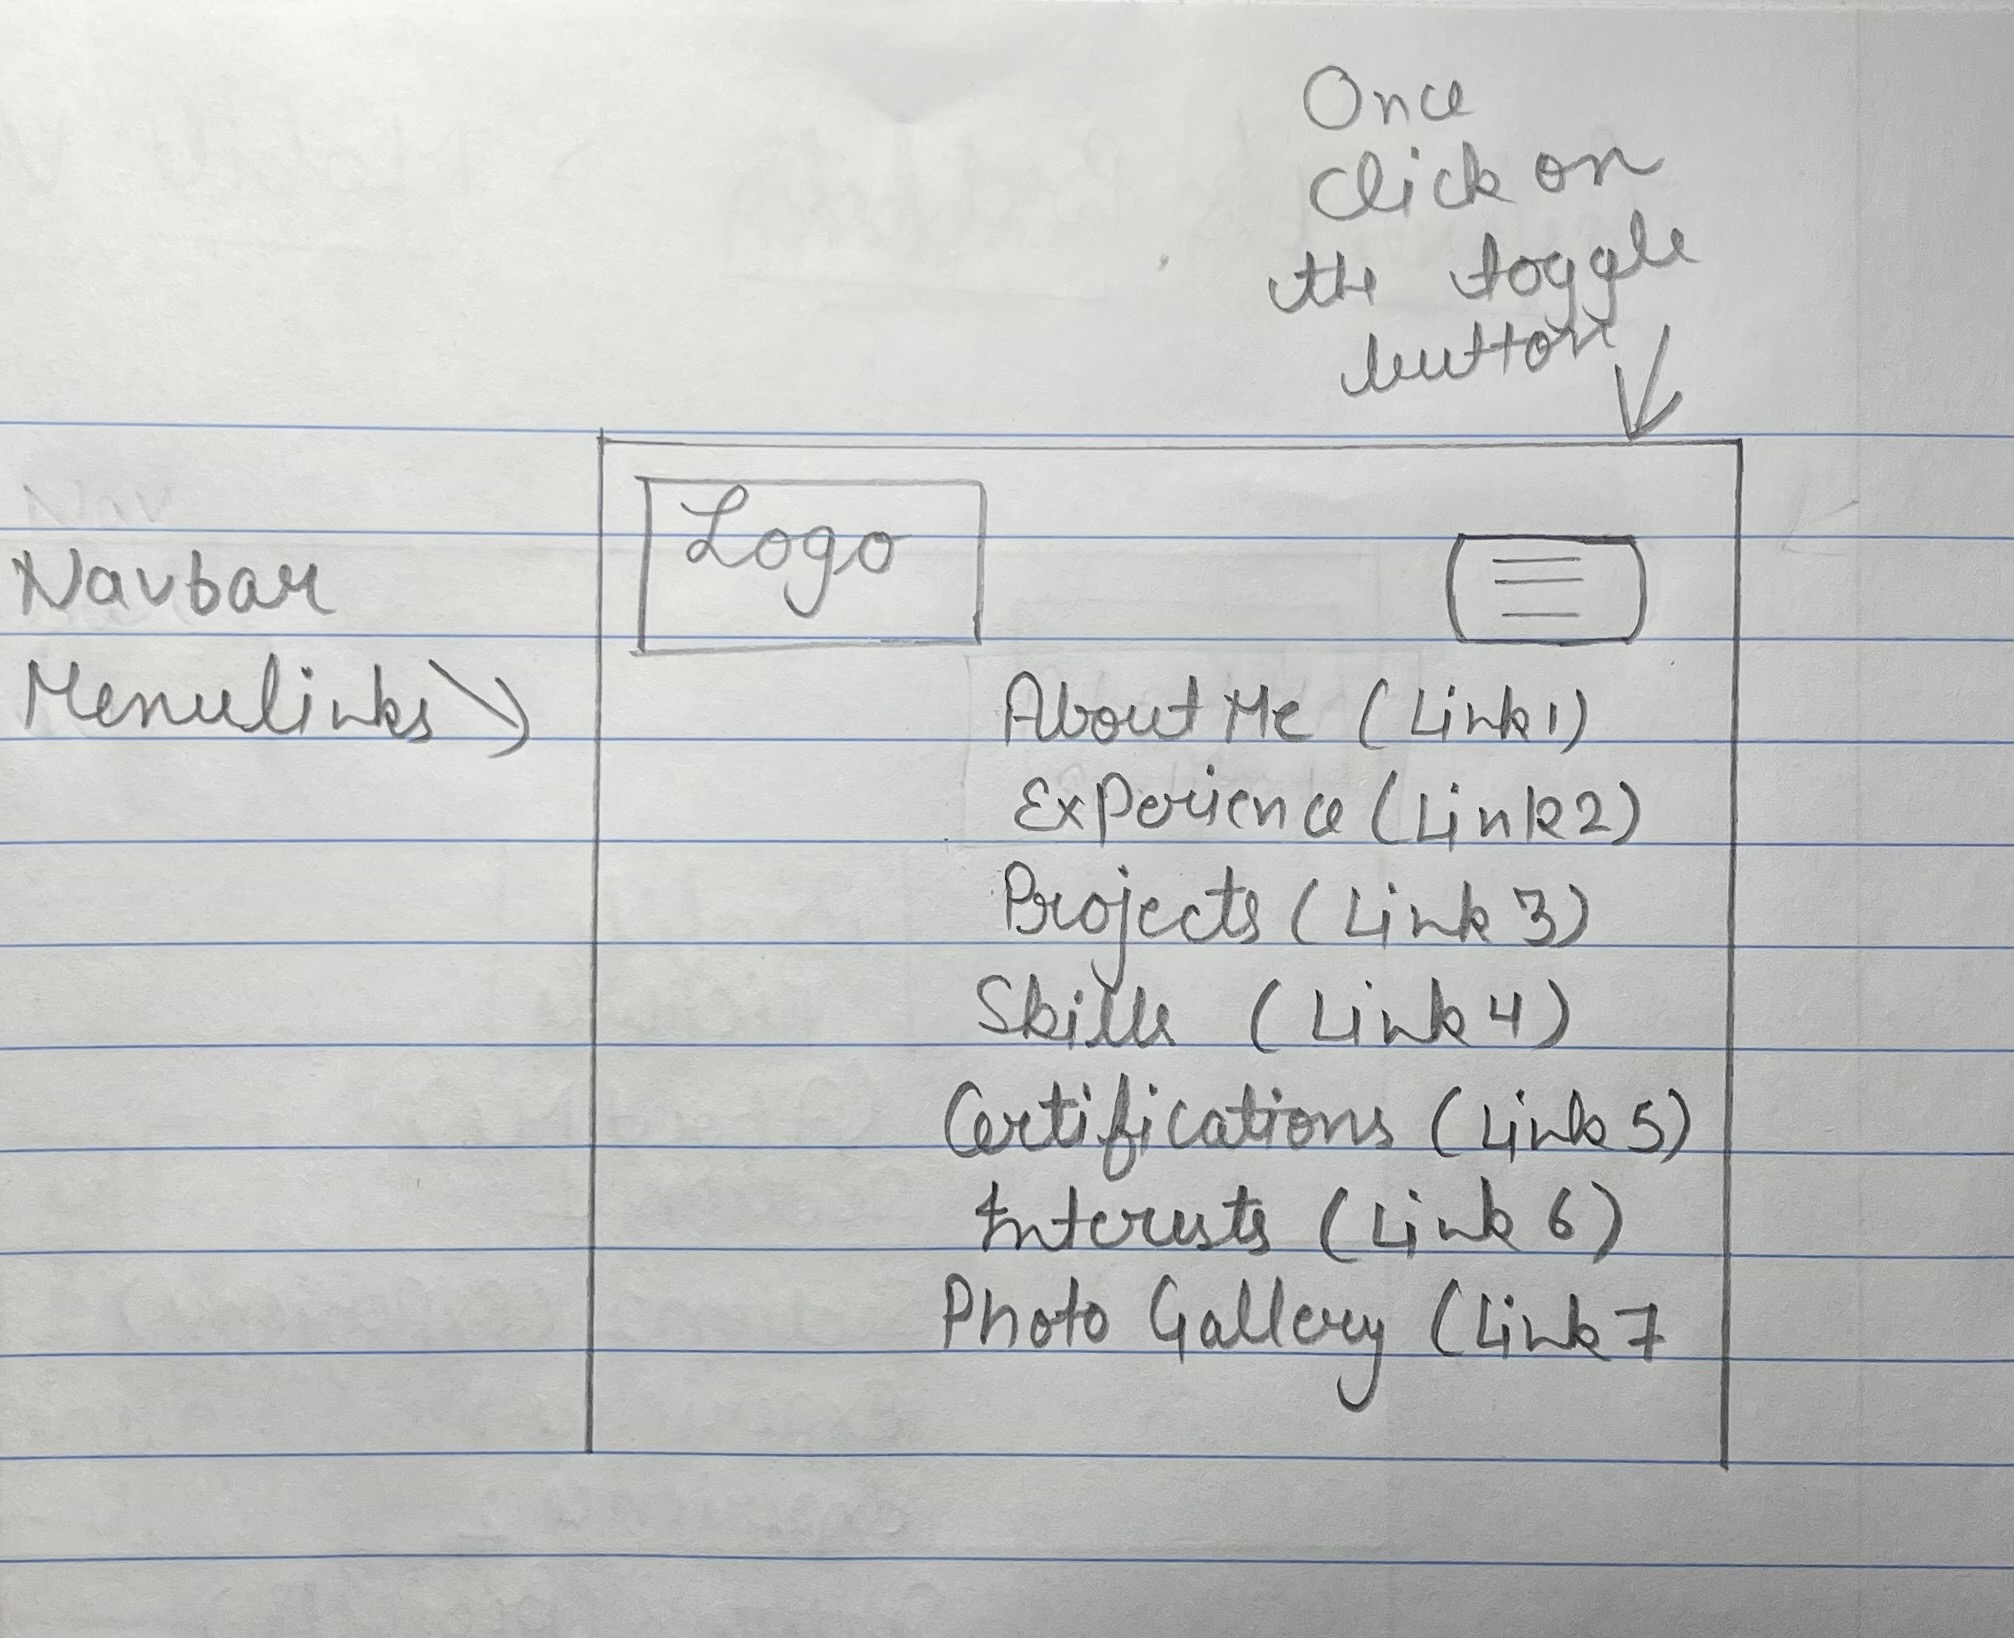 Once
click on
the toggle
button
Logo
Navbar
Menulinks
About Me (Link1)
Experience (Link2)
Projects (Link 3)
Skills (Link 4)
Certifications (Link 5)
Interests (Link 6)
Photo Gallery (Link 7